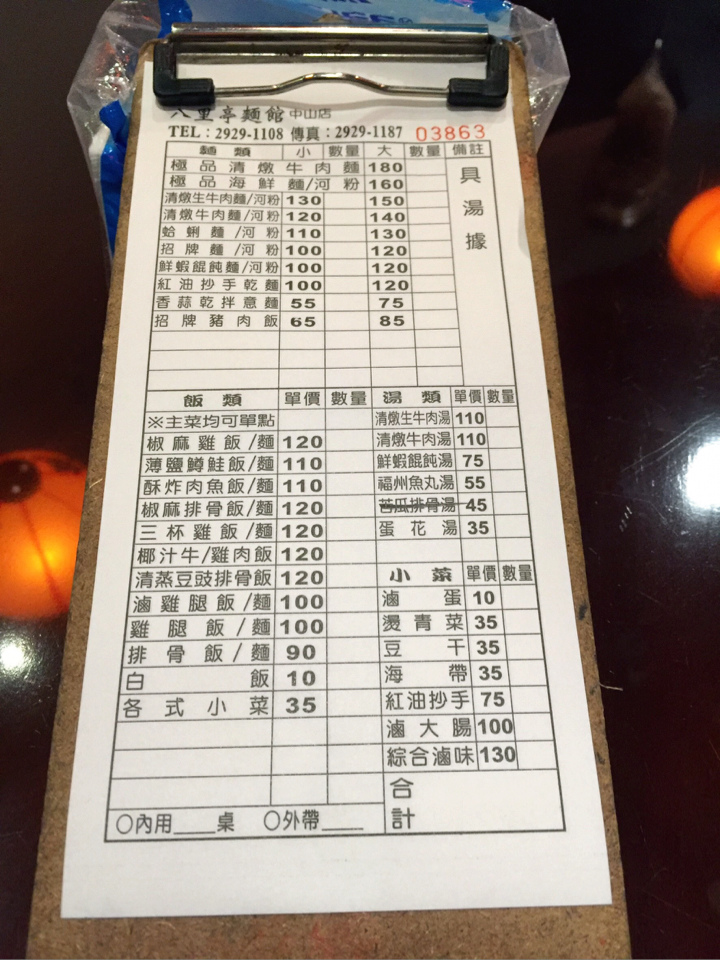 八里亭麵館 中山店
TEL：2929-1108 傳真：2929-1187 03863
麵類 小 數量 大 數量 備註
極品清燉牛肉麵 180
極品海鮮麵/河粉 160
清燉生牛肉麵/河粉 130 150
清燉牛肉麵/河粉 120 140
蛤蜊麵/河粉 110 130
招牌麵/河粉 100 120
鮮蝦餛飩麵/河粉 100 120
紅油抄手乾麵 100 120
香蒜乾拌意麵 55 75
招牌豬肉飯 65 85
具湯據
飯類 單價 數量
※主菜均可單點
椒麻雞飯/麵 120
薄鹽鱒鮭飯/麵 110
酥炸肉魚飯/麵 110
椒麻排骨飯/麵 120
三杯雞飯/麵 120
椰汁牛/雞肉飯 120
清蒸豆豉排骨飯 120
滷雞腿飯/麵 100
雞腿飯/麵 100
排骨飯/麵 90
白飯 10
各式小菜 35
○內用____桌 ○外帶____
湯類 單價 數量
清燉生牛肉湯 110
清燉牛肉湯 110
鮮蝦餛飩湯 75
福州魚丸湯 55
苦瓜排骨湯 45
蛋花湯 35
小菜 單價 數量
滷蛋 10
燙青菜 35
豆干 35
海帶 35
紅油抄手 75
滷大腸 100
綜合滷味 130
合計